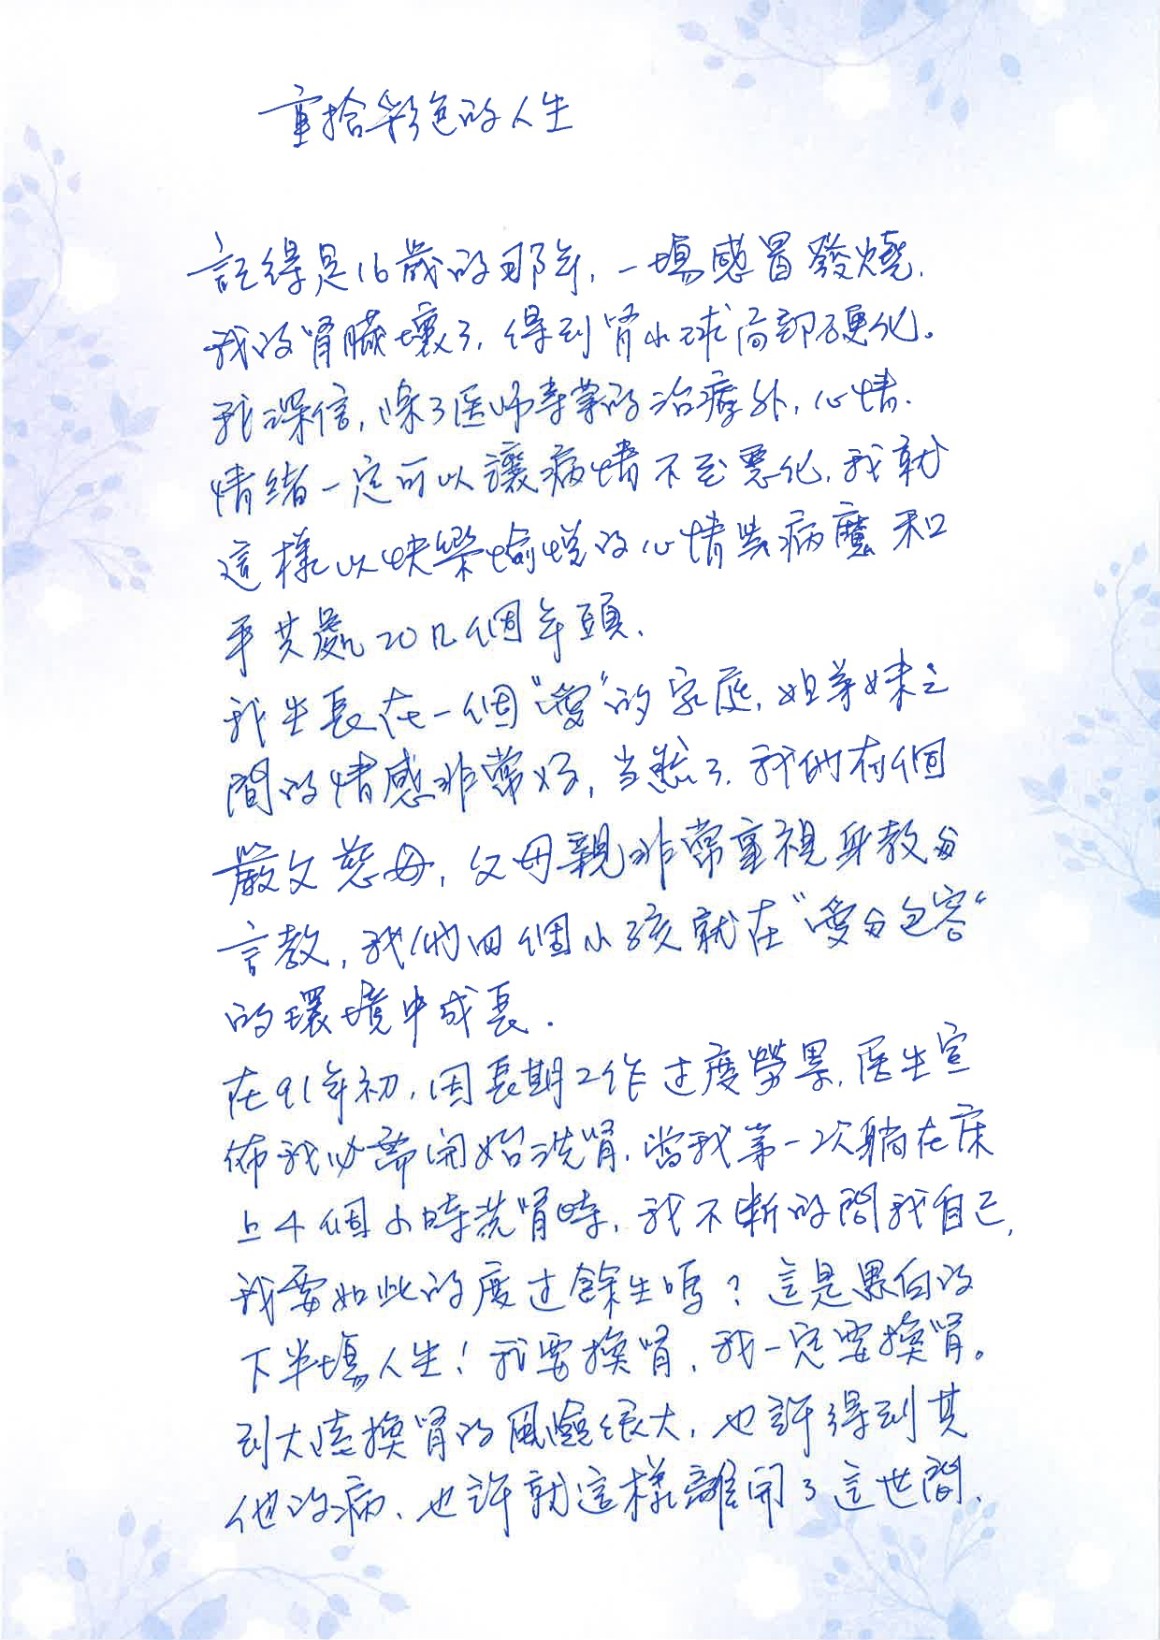 重拾彩色的人生
記得是16歲的那年,一場感冒發燒.
我的腎臟壞了,得到腎小球局部硬化。
我深信,除了医师專業的治療外,心情.
情緒一定可以讓病情不至惡化,我就
這樣以快樂愉悅的心情與病魔和
平共處20几個年頭.
我生長在一個"愛"的家庭,姐弟妹之
間的情感非常好,当然了.我們有個
嚴父慈母,父母親非常重視身教与
言教,我們四個小孩就在"愛与包容"
的環境中成長.
在91年初,因長期工作过度勞累,医生宣
佈我必需開始洗腎,當我第一次躺在床
上4個小時洗腎時,我不斷的問我自己,
我要如此的度过餘生嗎?這是黑白的
下半場人生!我要換腎,我一定要換腎。
到大陸換腎的風險很大,也許得到其
他的病、也許就這樣離開了這世間,